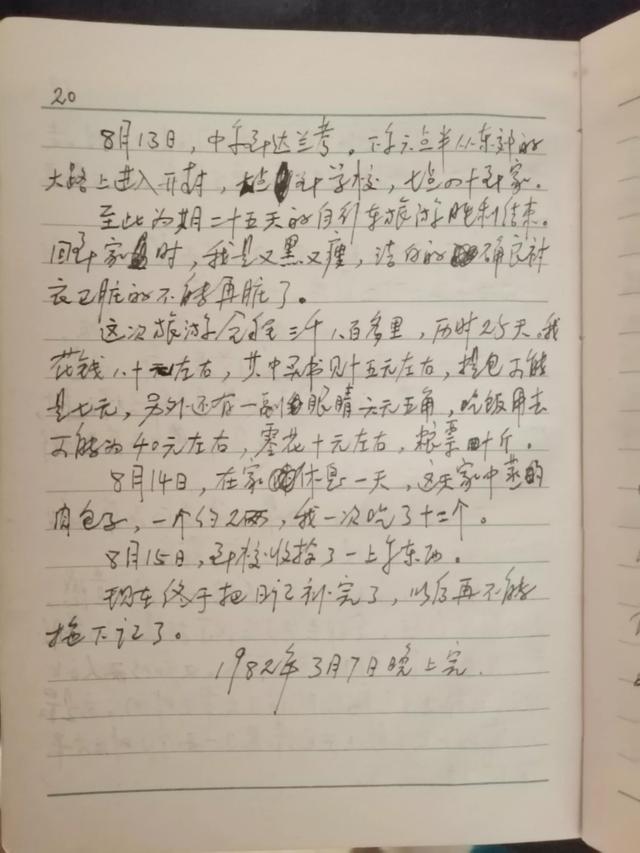 20
8月13日,中午到达兰考。下午六点半从东郊的
大路上进入开封,七点到学校,七点四十到家。
至此为期二十五天的自行车旅游胜利结束。
回到家时,我是又黑又瘦,洁白的的确良衬
衣已脏的不能再脏了。
这次旅游全程三千八百多里,历时25天。我
花钱八十元左右,其中买书见十五元左右,提包可能
是七元,另外还有一副眼睛六元五角,吃饭用去
可能为40元左右,零花十元左右,粮票四十斤。
8月14日,在家休息一天,这天家中蒸的
肉包子,一个约2两,我一次吃了十二个。
8月15日,到校收拾了一上午东西。
现在终于把日记补完了,以后再不能
拖下记了。
1982年3月7日晚上完.